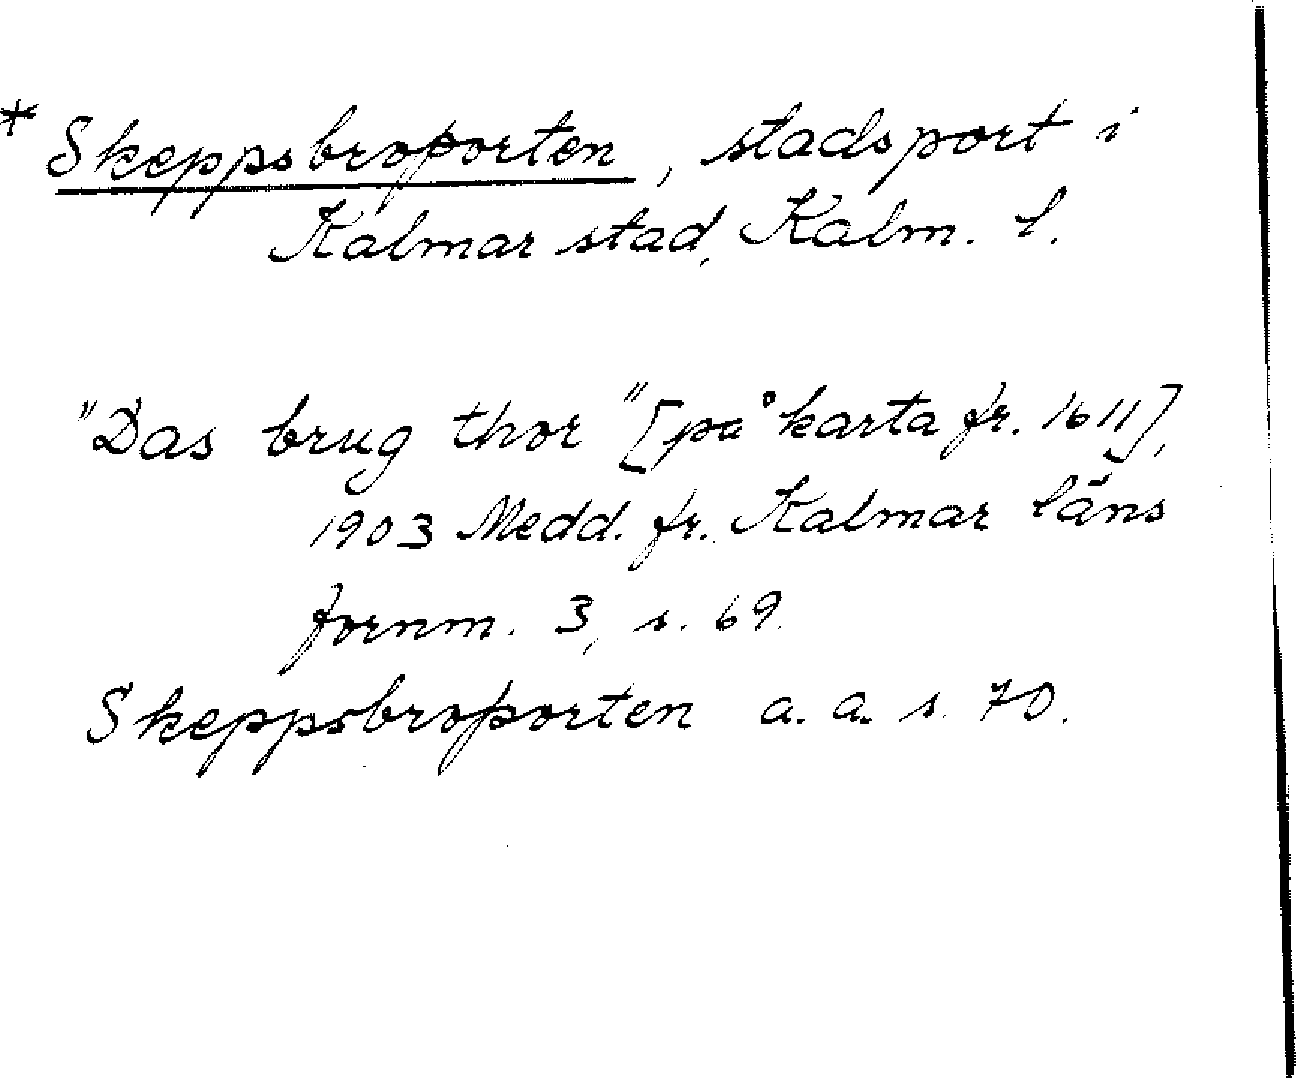 * Skeppsbroporten, stadsport i
Kalmar stad, Kalm. l.
"Das brug thor" [på karta fr. 1611],
1903 Medd. fr. Kalmar läns
fornm. 3, s. 69.
Skeppsbroporten a. a. s. 70.